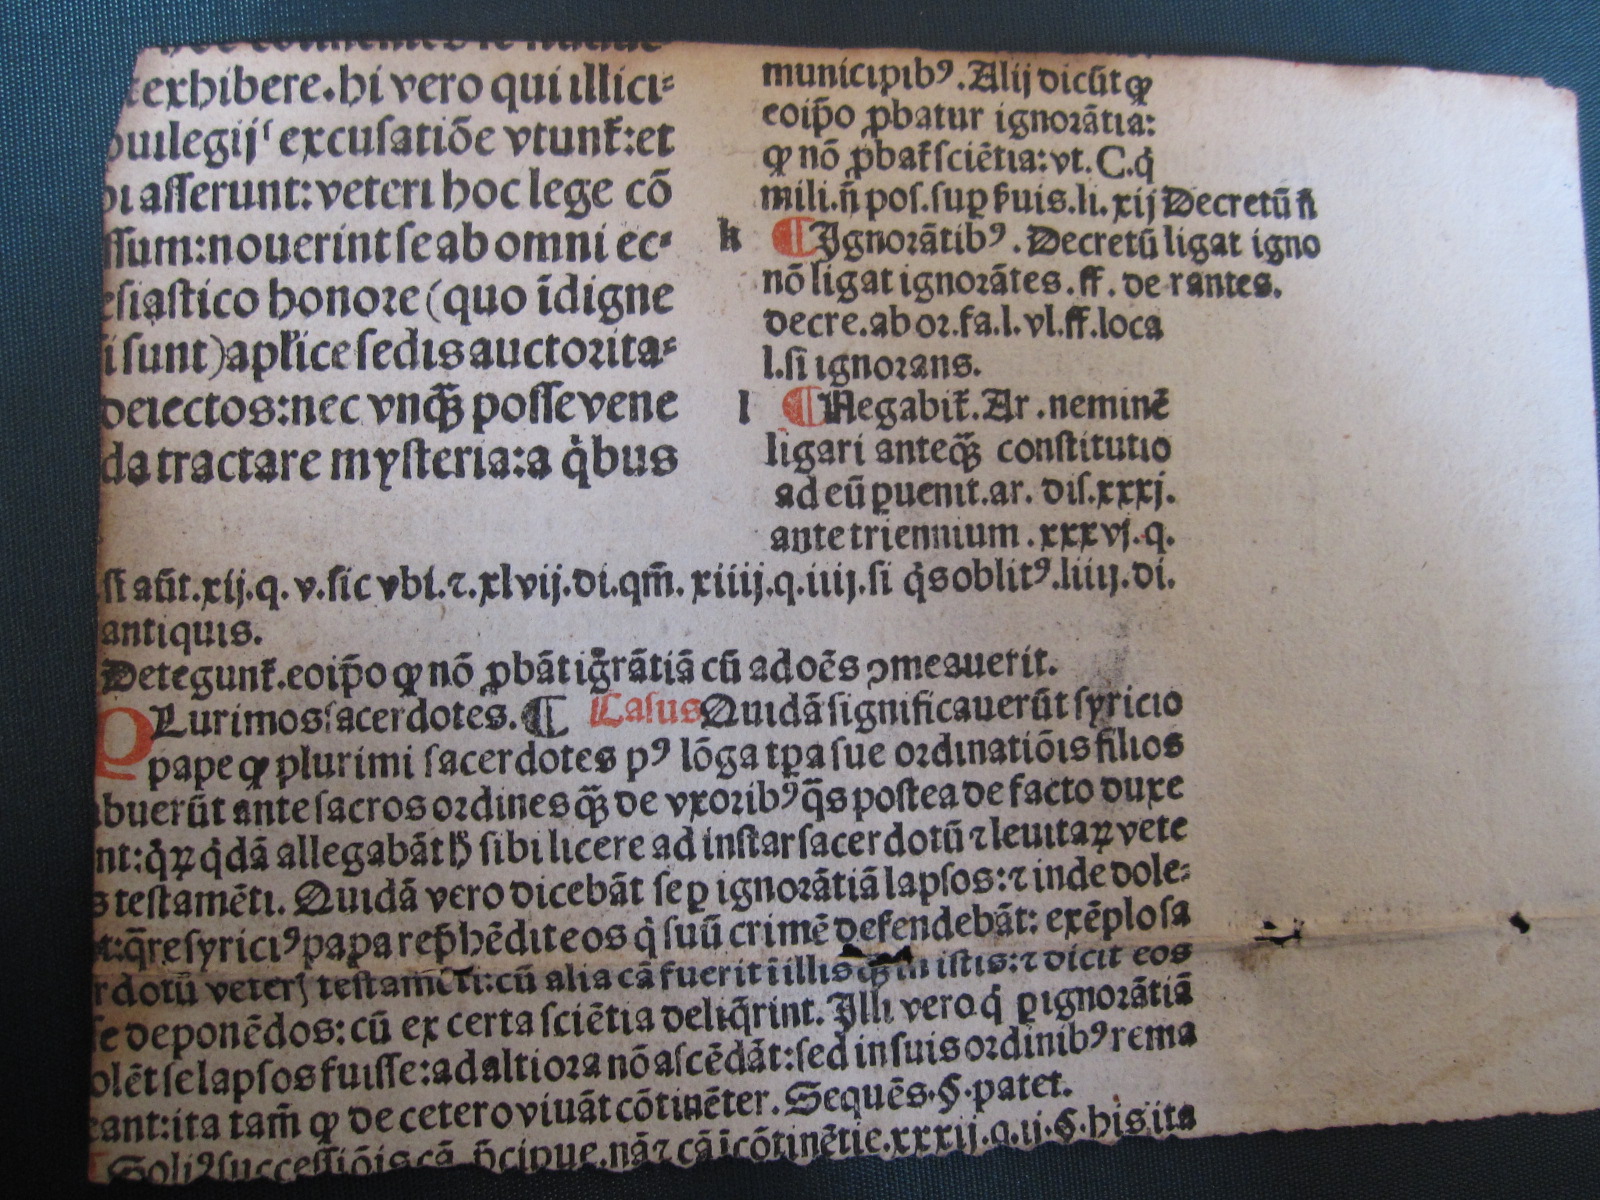 exhibere.hi vero qui illici⸗
puilegijſ excuſatiōe vtunt̄:et
aſſerunt:veteri hoc lege cō
ſſum:nouerint ſe ab omni ec⸗
eſiaſtico honore (quo īdigne
i ſunt) apl̄ice ſedis auctorita⸗
deiectos:nec vnqꝫ̄ poſſe vene
da tractare myſteria:a q̇bus
municipibꝰ.Alij dicūt ꝙ
eoip̄o ꝓbatur ignorātia:
ꝙ nō ꝓbat̄ ſciētia:vt.C.q̇
mili.n̄ poſ.ſuꝑ ẜuis.li.xij
Decretū n̄
k ¶Ignorātibꝰ.Decretū
ligat igno
nō ligat ignorātes.ff.de
rantes.
decre.ab or.fa.l.vl.ff.loca
l.ſi ignorans.
l ¶Negabit̄.Ar.neminē
ligari anteqꝫ̄ conſtitutio
ad eū ꝑuenit.ar. diſ.xxxj.
ante triennium.xxxvj.q.
ſi aūt.xij.q.v.ſic vbi.⁊.xlvij.di.qm̄.xiiij.q.iiij.ſi q̇s oblitꝰ.liiij.di.
antiquis.
Detegunt̄.eoip̄o ꝙ nō ꝓbāt ig̊rātiā cū ad oēs ↄmeauerit.
PLurimos ſacerdotes.¶ Caſus Quidā ſignificauerūt ſyricio
pape ꝙ plurimi ſacerdotes pꝰ lōga tꝑa ſue ordinatiōis filios
buerūt ante ſacros ordines qꝫ̄ de vxoribꝰ q̄s poſtea de facto duxe
nt:q̇ꝝ q̇dā allegabāt ꝧ ſibi licere ad inſtar ſacerdotū ⁊ leuitaꝝ vete
s teſtamēti. Quidā vero dicebāt ſe ꝑ ignorātiā lapſos:⁊ inde dole⸗
t:q̄re ſyriciꝰ papa rep̄hēdit eos q̇ ſuū crimē defendebāt: exēplo ſa
rdotū veterꝭ teſtamēti:cū alia cā fuerit ī illis qꝫ̄ in iſtis:⁊ dicit eos
ſe deponēdos:cū ex certa ſciētia deliq̄rint. Illi vero q̇ ꝑ ignorātiā
olēt ſe lapſos fuiſſe:ad altiora nō aſcēdāt:ſed in ſuis ordinibꝰ rema
eant:ita tam̄ ꝙ de cetero viuāt cōtinēter. Sequēs.§.patet.
Soliꝰ ſucceſſiōis cā p̄cipue.nā ⁊ cā ī cōtinētie.xxxij.q.ij.§.his ita